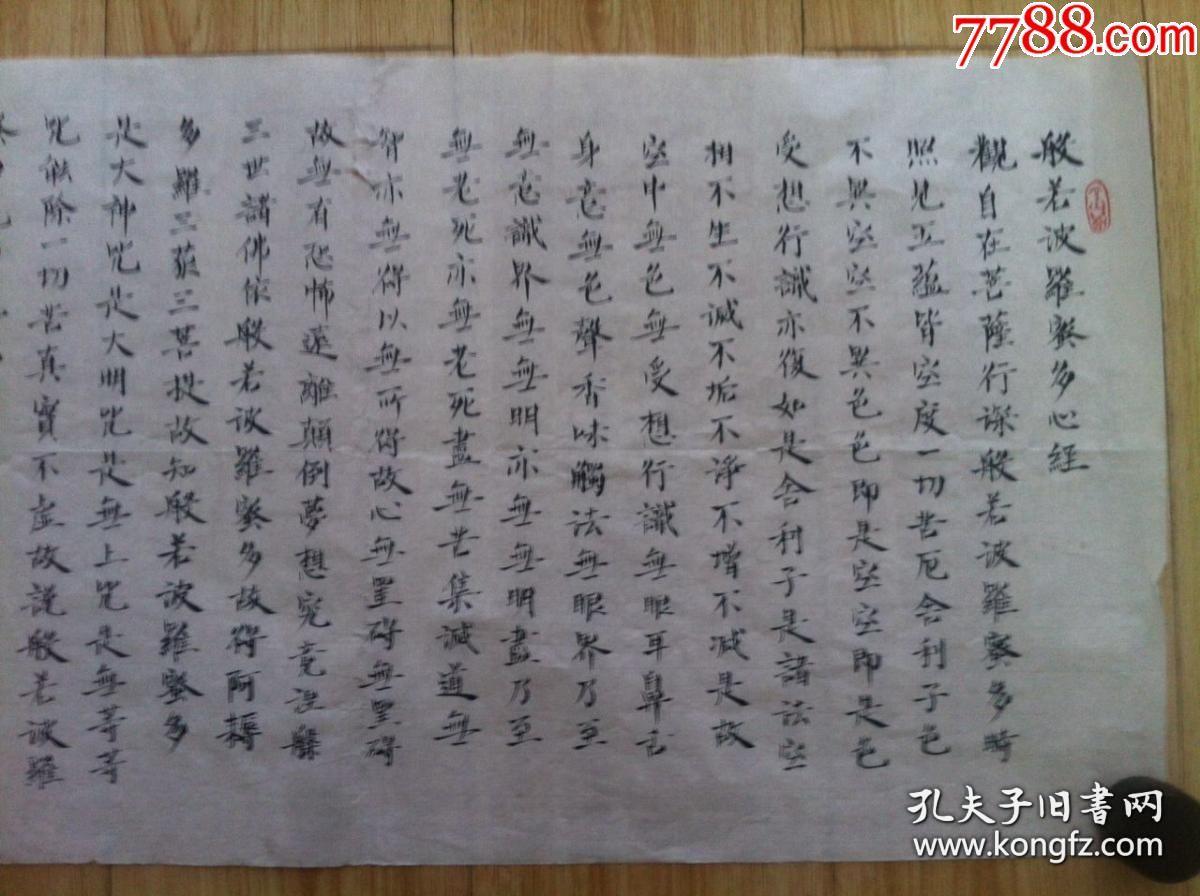 般若波羅蜜多心経
觀自在菩薩行深般若波羅蜜多時
照見五蘊皆空度一切苦厄舍利子色
不異空空不異色色即是空空即是色
受想行識亦復如是舍利子是諸法空
相不生不滅不垢不淨不增不減是故
空中無色無受想行識無眼耳鼻舌
身意無色聲香味觸法無眼界乃至
無意識界無無明亦無無明盡乃至
無老死亦無老死盡無苦集滅道無
智亦無得以無所得故心無罣碍無罣碍
故無有恐怖遠離顛倒夢想究竟涅槃
三世諸佛依般若波羅蜜多故得阿耨
多羅三藐三菩提故知般若波羅蜜多
是大神咒是大明咒是無上咒是無等等
咒能除一切苦真實不虛故説般若波羅
7788.com
孔夫子旧書网
www.kongfz.com